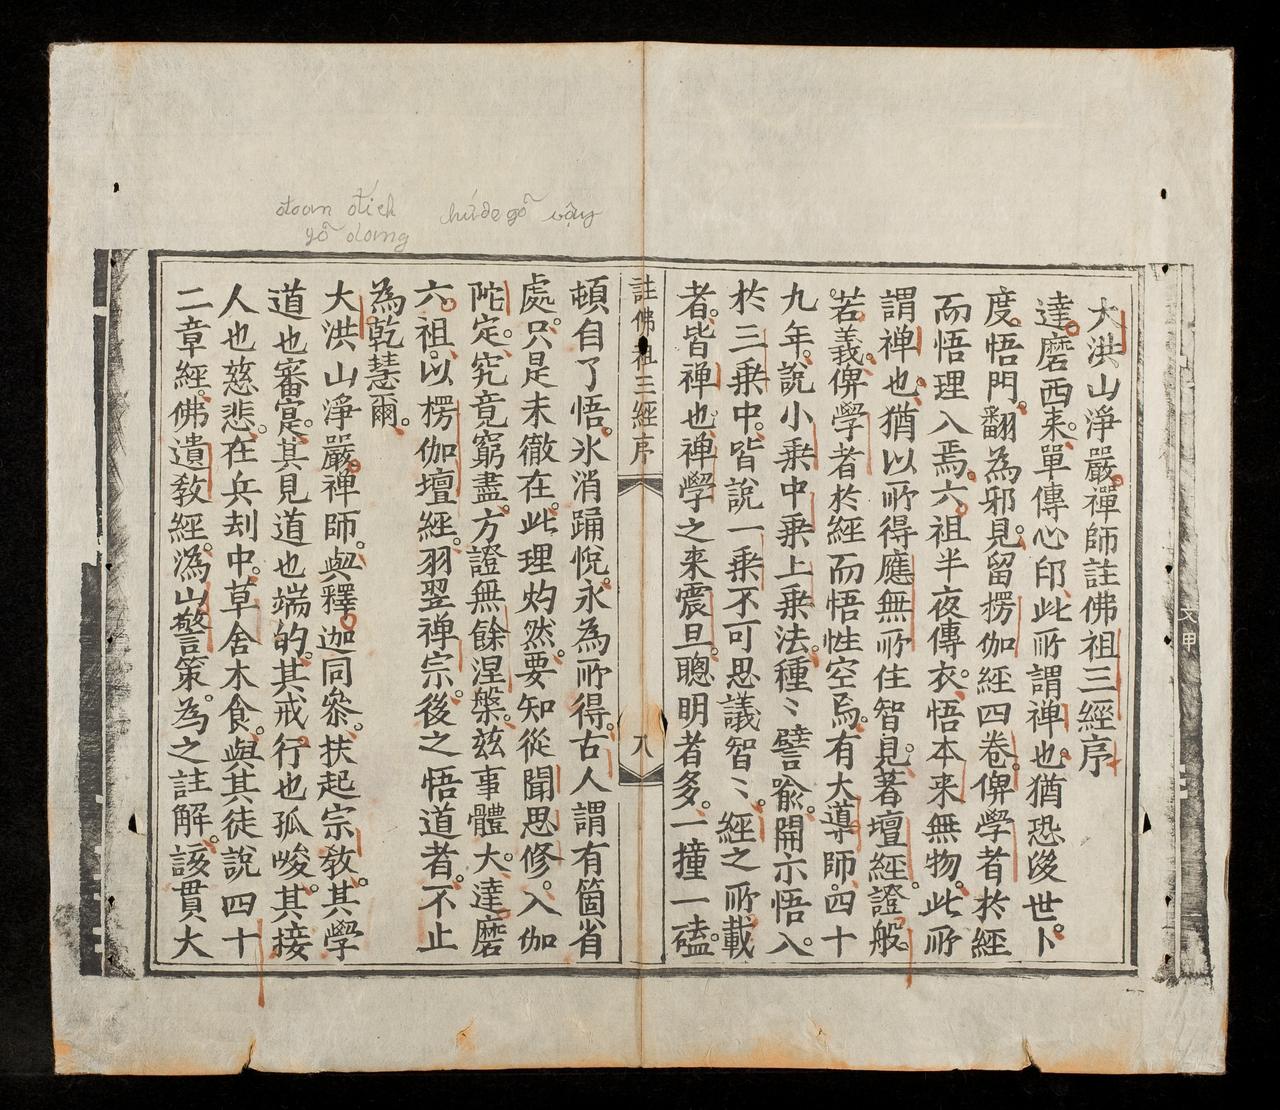 đoan đích
gỗ dang
大洪山淨嚴禪師註佛祖三經序
達磨西来。單傳心印。此所謂禅也。猶恐後世卜
度。悟門。翻為邪見。留楞伽經四卷。俾學者於經
而悟理入焉。六祖半夜傳衣。悟本来無物。此所
謂禅也。猶以所得應無所住智見。著壇經。證般。
若義。俾學者於經而悟性空焉。有大導師。四十
九年。說小乗中乗上乗法。種〻譬喩。開示悟入。
於三乗中。皆說一乗不可思議智〻。經之所載
者。皆禅也。禅學之来震旦。聰明者多。一撞一磕。
註佛祖三經序
八
頓自了悟。氷消踊悅。永為所得。古人謂有箇省
處。只是未徹在。此理灼然。要知從聞思修。入伽
陀定。究竟窮盡。方證無餘涅槃。茲事體大。達磨
六祖。以楞伽壇經。羽翌禅宗。後之悟道者。不止
為乾慧爾。
大洪山淨嚴禅師。與釋迦同叅。扶起宗敎。其學
道也審寔。其見道也端的。其戒行也孤峻。其接
人也慈悲。在兵刦中。草舍木食。與其徒說四十
二章經。佛遺敎經。潙山警策。為之註解。該貫大
文甲